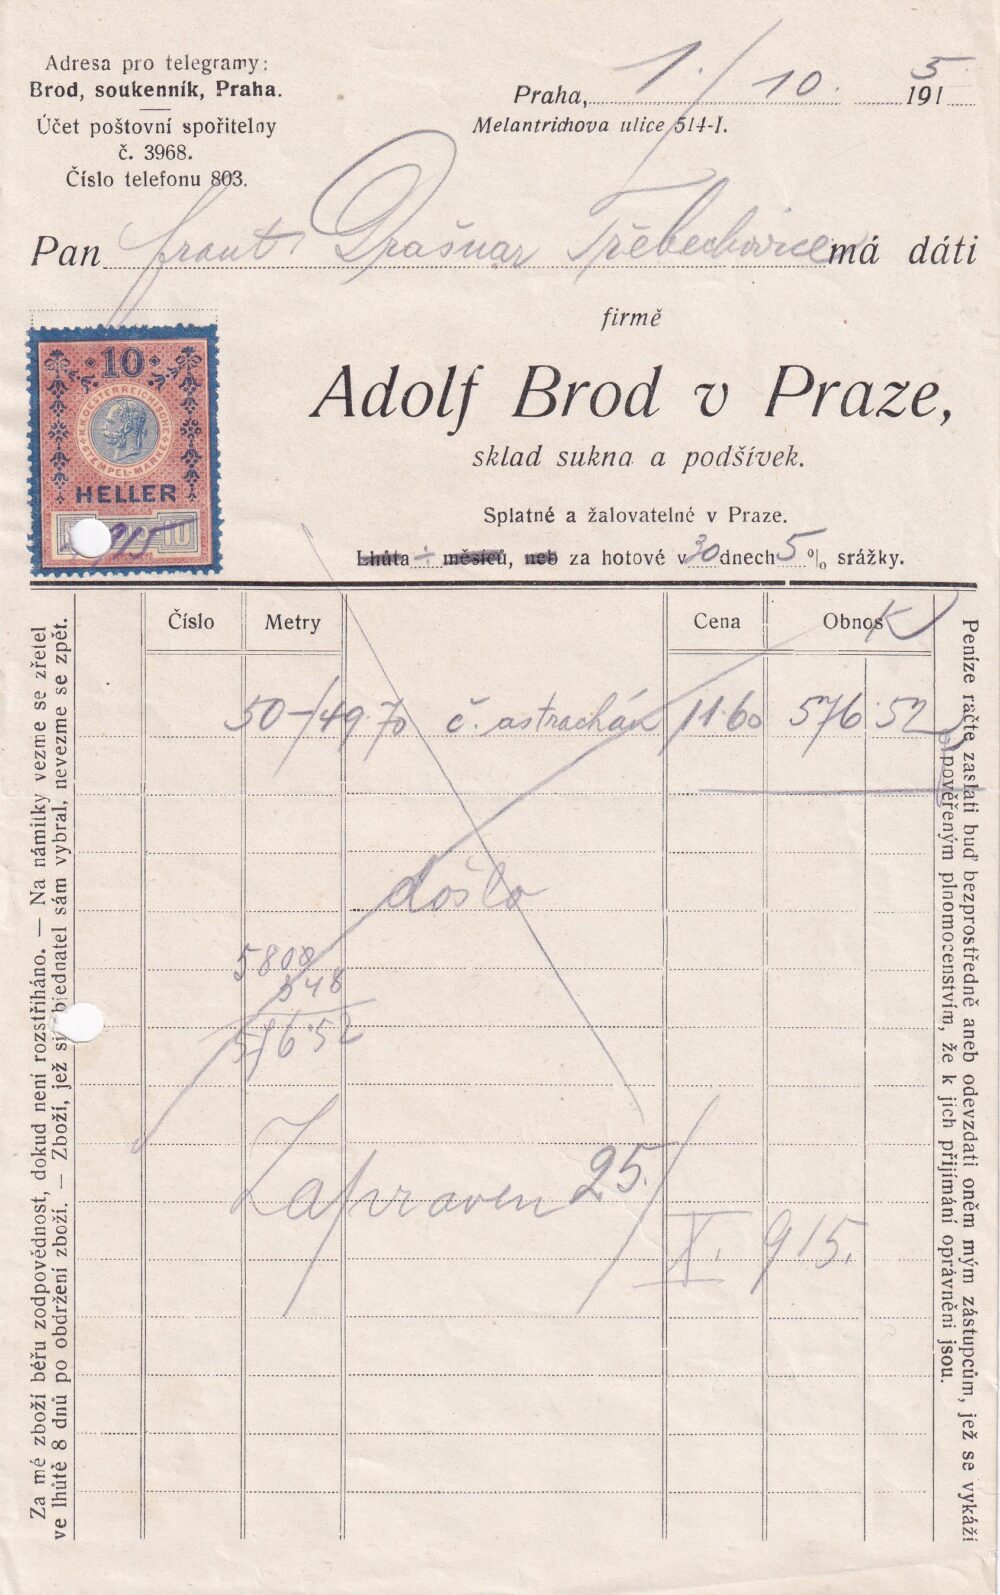 Adresa pro telegramy:
Brod, soukenník, Praha.
Účet poštovní spořitelny
č. 3968.
Číslo telefonu 803.
Praha, 1./10. 1915
Melantrichova ulice 514-I.
Pan frant. Drašnar Třebechovice má dáti
firmě
Adolf Brod v Praze,
sklad sukna a podšívek.
Splatné a žalovatelné v Praze.
Lhůta ÷ měsíců, neb za hotové v 30 dnech 5 % srážky.
10
K.K. OESTERREICHISCHE
STEMPEL-MARKE
HELLER
10
915
Číslo Metry Cena Obnos K
50-/49.70 č. astrachán 11.60 576.52
došlo
5800
348
576.52
Zapraven 25./
X. 915.
Za mé zboží běřu zodpovědnost, dokud není rozstříháno. — Na námitky vezme se zřetel
ve lhůtě 8 dnů po obdržení zboží. — Zboží, jež si objednatel sám vybral, nevezme se zpět.
Peníze račte zaslati buď bezprostředně aneb odevzdati oněm mým zástupcům, jež se vykáží
pověřeným plnomocenstvím, že k jich přijímání oprávněni jsou.